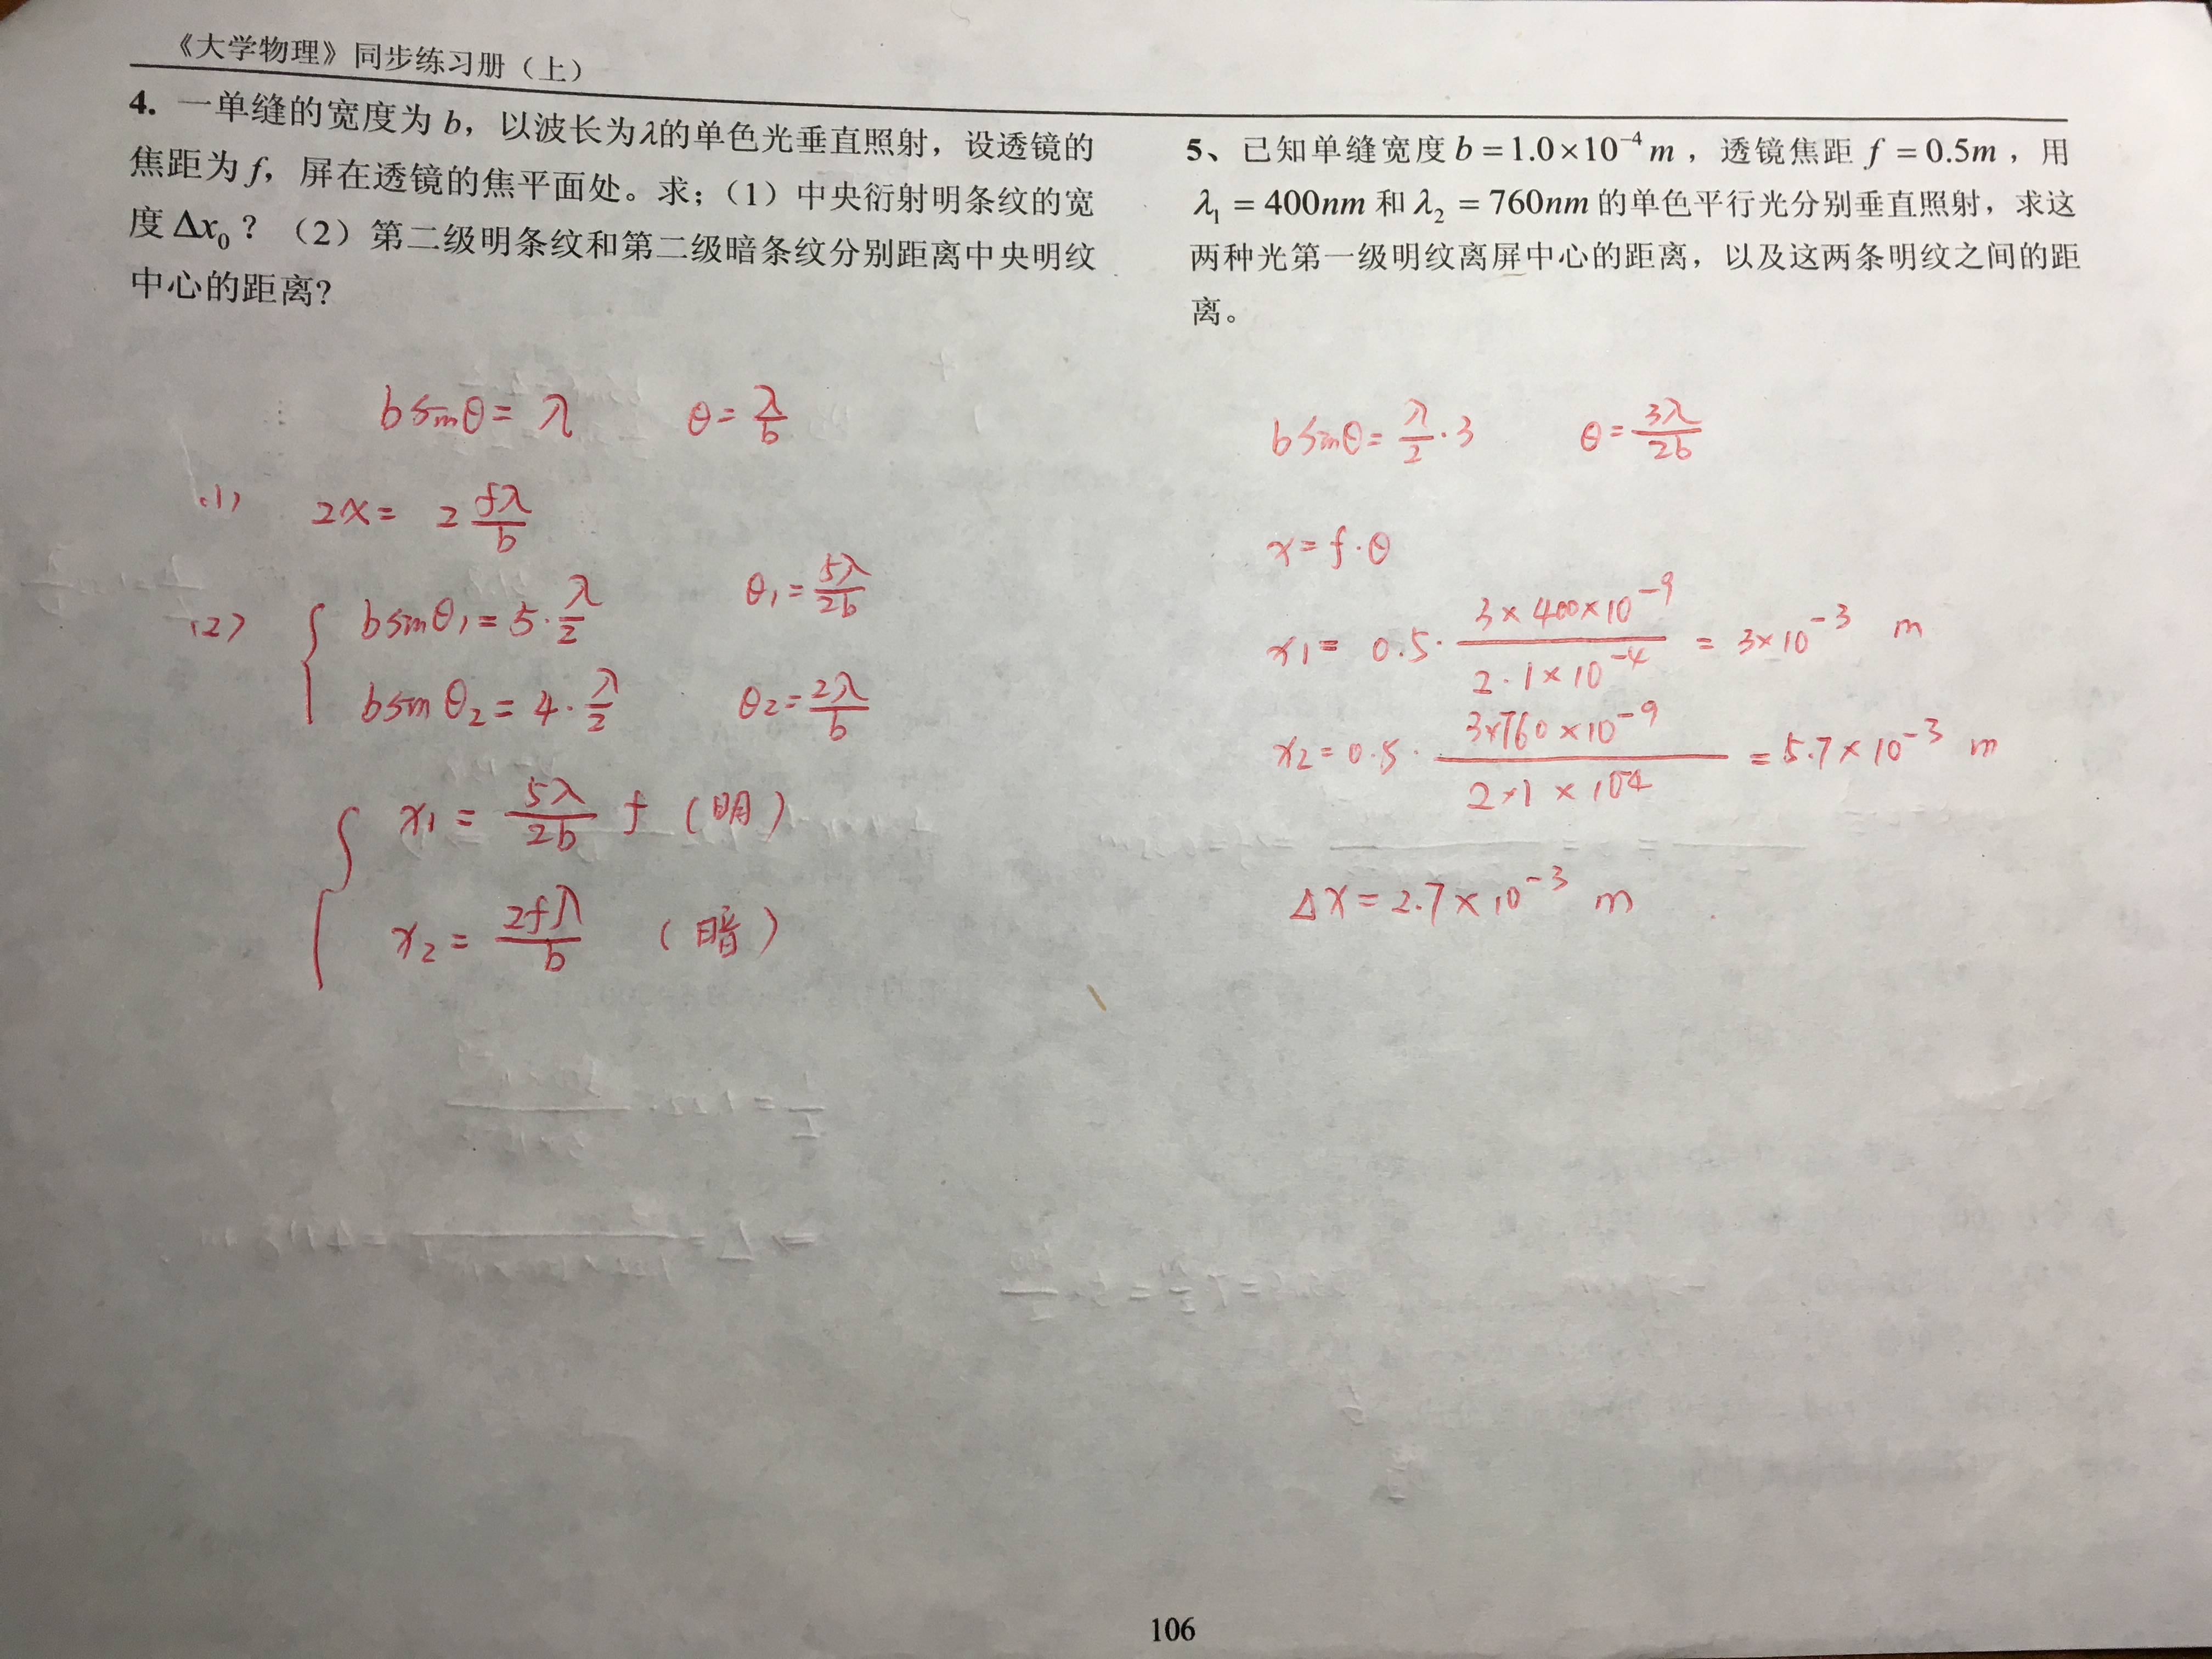 《大学物理》同步练习册（上）
4. 一单缝的宽度为 b，以波长为λ的单色光垂直照射，设透镜的
焦距为 f，屏在透镜的焦平面处。求；（1）中央衍射明条纹的宽
度 Δx₀？（2）第二级明条纹和第二级暗条纹分别距离中央明纹
中心的距离？
b sinθ = λ θ = λ/b
(1) 2x = 2 fλ/b
(2) { b sinθ₁ = 5·λ/2 θ₁ = 5λ/2b
b sinθ₂ = 4·λ/2 θ₂ = 2λ/b
{ x₁ = 5λ/2b f （明）
x₂ = 2fλ/b （暗）
5、已知单缝宽度 b = 1.0×10⁻⁴ m，透镜焦距 f = 0.5m，用
λ₁ = 400nm 和 λ₂ = 760nm 的单色平行光分别垂直照射，求这
两种光第一级明纹离屏中心的距离，以及这两条明纹之间的距
离。
b sinθ = λ/2·3 θ = 3λ/2b
x = f·θ
x₁ = 0.5· 3×400×10⁻⁹ / 2·1×10⁻⁴ = 3×10⁻³ m
x₂ = 0.5· 3×760×10⁻⁹ / 2×1×10⁻⁴ = 5.7×10⁻³ m
Δx = 2.7×10⁻³ m
106